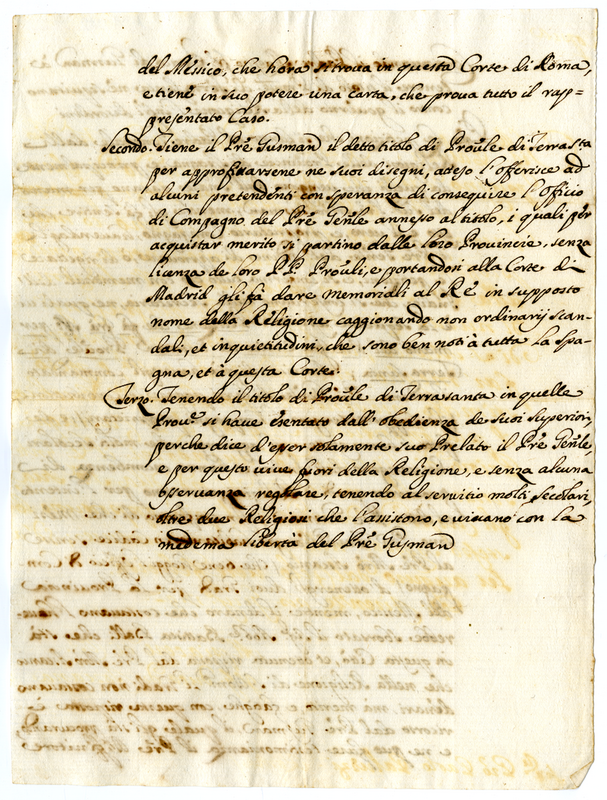 del Messico, che hora si troua in questa Corte di Roma,
e tiene in suo potere una carta, che proua tutto il rap-
presentato Caso.
Secondo. Tiene il Prẽ Gusman il detto titolo di Prouĩle di Terrasta
per approfittarsene ne suoi disegni, atteso l'offerisce ad
alcuni pretendenti con speranza di conseguire l'officio
di Compagno del Prẽ Genĩle annesso al titolo, i quali per
acquistar merito si partino dalle loro Prouincie, senza
licenza de loro PP. Prouĩli, e portandosi alla Corte di
Madrid gli fà dare memoriali al Rè in supposto
nome della Religione caggionando non ordinarij scan-
dali, et inquietitudini, che sono ben noti à tutta la Spa-
gna, et à questa Corte.
Terzo. Tenendo il titolo di Prouĩle di Terrasanta in quelle
Prou.e si haue esentato dall'obedienza de suoi Superiori,
perche dice d'esser solamente suo Prelato il Prẽ Genĩle
e per questo uiue fuori della Religione, e senza alcuna
osseruanza reglare, tenendo al seruitio molti secolari,
oltre due Religiosi che l'assistono, e uiuano con la
medema libertà del Prẽ Gusman